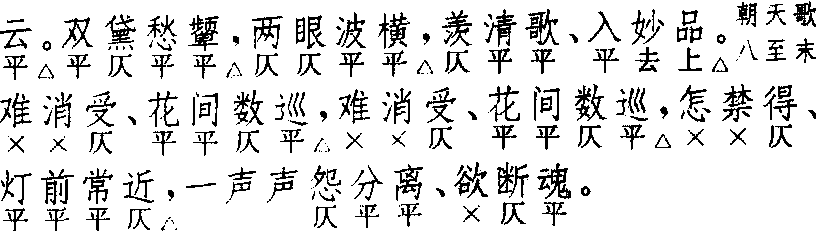 云。双黛愁颦，两眼波横，羡清歌、入妙品。朝天歌
平△平仄平平△仄仄平平△仄平平 平去上△八至末
难消受、花间数巡，难消受、花间数巡，怎禁得、
××仄 平平仄平△××仄 平平仄平△××仄
灯前常近，一声声怨分离、欲断魂。
平平平仄△ 仄平平 ×仄平